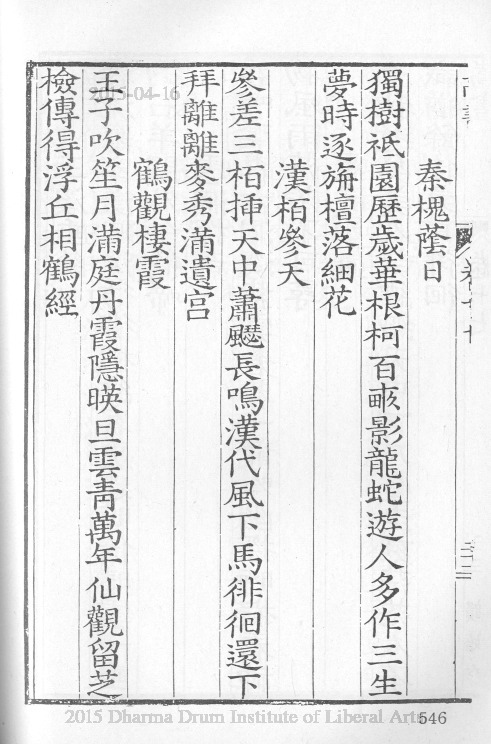 秦槐蔭日
獨樹祇園歷歲華根柯百畝影龍蛇遊人多作三生
夢時逐旃檀落細花
漢栢參天
參差三栢揷天中蕭颸長鳴漢代風下馬徘徊還下
拜離離麥秀滿遺宮
鶴觀棲霞
王子吹笙月滿庭丹霞隱暎旦雲靑萬年仙觀留芝
檢傳得浮丘相鶴經
2015-04-16
2015 Dharma Drum Institute of Liberal Arts
546